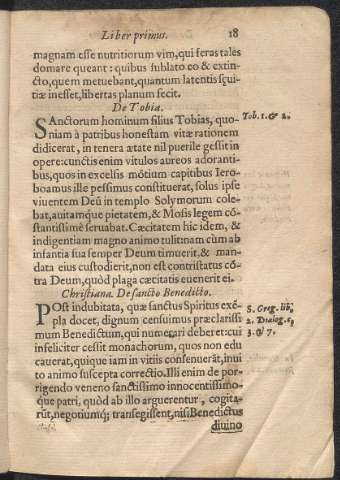 Liber primus. 18
magnam esse nutritiorum vim, qui feras tales
domare queant: quibus sublato eo & extin-
cto, quem metuebant, quantum latentis sęui-
tiæ inesset, libertas planum fecit.
De Tobia.
SAnctorum hominum filius Tobias, quo- Tob. 1. & 2.
niam à patribus honestam vitæ rationem
didicerat, in tenera ætate nil puerile gessit in
opere: cunctis enim vitulos aureos adoranti-
bus, quos in excelsis mótium capitibus Iero-
boamus ille pessimus constituerat, solus ipse
viuentem Deũ in templo Solymorum cole-
bat, auitamque pietatem, & Mosis legem cõ-
stantissimè seruabat. Cæcitatem hic idem, &
indigentiam magno animo tulit: nam cùm ab
infantia sua semper Deum timuerit, & man-
data eius custodierit, non est contristatus cõ-
tra Deum, quòd plaga cæcitatis euenerit ei.
Christiana. De sancto Benedicto.
POst indubitata, quæ sanctus Spiritus exẽ- S. Greg. lib.
pla docet, dignum censuimus præclarissi 2. Dialog. c.
mum Benedictum, qui numerari deberet: cui 3. & 7.
infeliciter cessit monachorum, quos non edu
cauerat, quique iam in vitiis consenuerãt, inui
to animo suscepta correctio. Illi enim de por-
rigendo veneno sanctissimo innocentissimo-
que patri, quòd ab illo arguerentur, cogita-
rũt, negotiumq; transegissent, nisi Benedictus
diuino